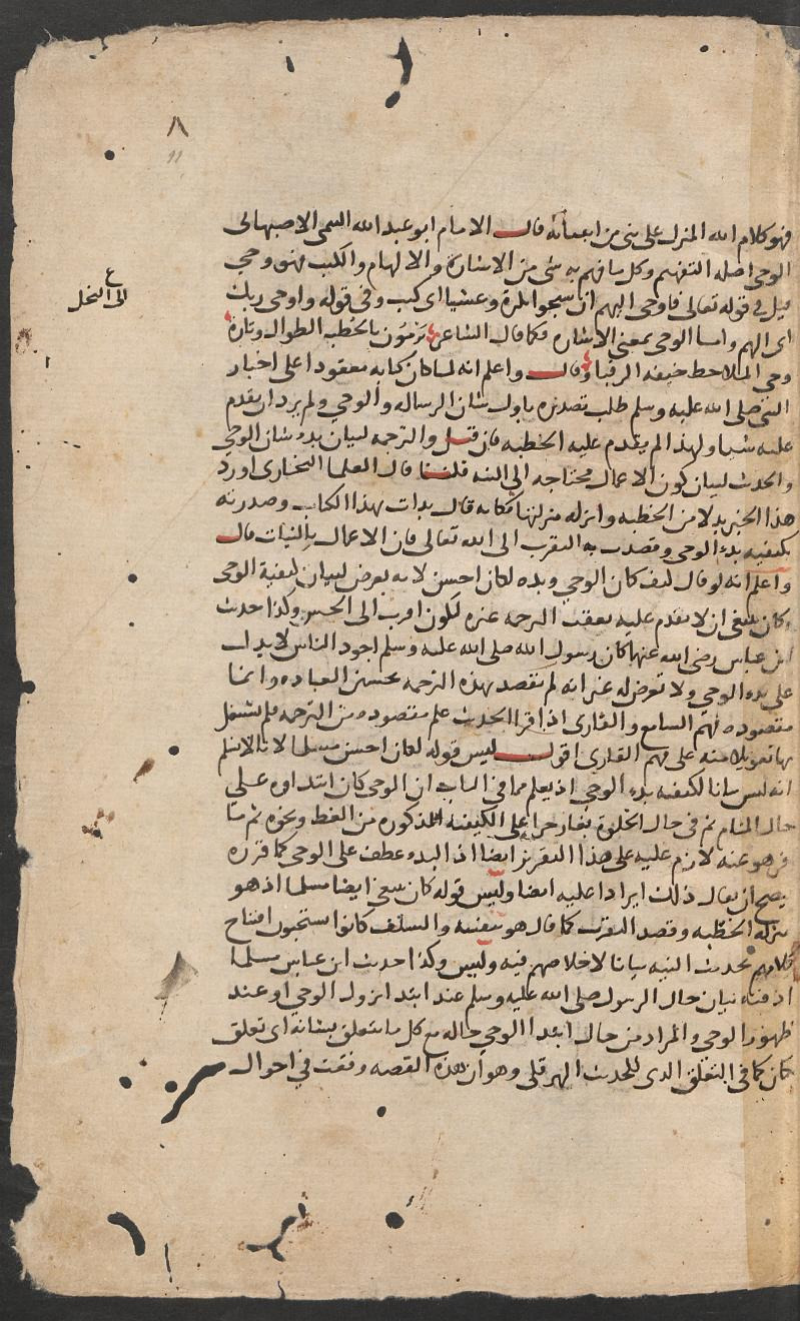 ٨
١١
فهو كلام الله المنزل على نبي من انبيائه قال الامام ابو عبد الله التيمي الاصبهاني
الوحي اصله التفهيم وكل ما فهم به شي من الاشارة والالهام والكتب فهو وحي
قيل في قوله تعالى فاوحى اليهم ان سبحوا بكرة وعشيا اي كتب وفي قوله واوحى ربك
الى النحل
اي الهم واما الوحي بمعنى الاشارة فكما قال الشاعر يرمون بالخطب الطوال وتارة
وحي الملاحظ خيفة الرقباء قال واعلم انه لما كان كتابه معقودا على اخبار
النبي صلى الله عليه وسلم طلب تصديره باول شان الرسالة والوحي ولم يرد ان يقدم
عليه شيا ولهذا لم يقدم عليه الخطبة فان قيل والترجمة لبيان بدء شان الوحي
والحديث لبيان كون الاعمال محتاجة الى النية قلنا قال العلما البخاري اورد
هذا الخبر بدلا من الخطبة وانزله منزلتها فكانه قال بدات بهذا الكتاب وصدرته
بكيفية بدء الوحي وقصدت به التقرب الى الله تعالى فان الاعمال بالنيات قال
واعلم انه لو قال كيف كان الوحي وبدؤه لكان احسن لانه تعرض لبيان كيفية الوحي
وكان ينبغي ان لا يقدم عليه بعقب الترجمة غيره لكون اقرب الى الحسن وكذا حديث
ابن عباس رضي الله عنهما كان رسول الله صلى الله عليه وسلم اجود الناس لا يدل
على بدء الوحي ولا تعرض له غير انه لم يقصد بهذه الترجمة تحسين العبادة وانما
مقصوده فهم السامع والقاري اذا قرا الحديث علم مقصوده من الترجمة فلم يشتغل
بها تعويلا منه على فهم القاري اقول ليس قوله لكان احسن مسلما لانا لا نسلم
انه ليس بيانا لكيفية بدء الوحي اذ يعلم مما في الباب ان الوحي كان ابتداوه على
حال المنام ثم في حال الخلوة بغار حرا على الكيفية المذكورة من الغط ونحوه ثم ما
فر هو عنه لازم عليه على هذا التقرير ايضا اذ البدء عطف على الوحي كما قرره
يصح ان يقال ذلك ايرادا عليه ايضا وليس قوله كان ينبغي ايضا مسلما اذ هو
بمنزلة الخطبة وقصد التقرب كما قال هو بنفسه والسلف كانوا يستحبون افتتاح
كلامهم بحديث النية بيانا لاخلاصهم فيه وليس وكذا حديث ابن عباس مسلما
اذ فيه بيان حال الرسول صلى الله عليه وسلم عند ابتدا نزول الوحي او عند
ظهور الوحي والمراد من حال ابتدا الوحي حاله مع كل ما يتعلق بشانه اي تعلق
كان كما في التعلق الذي للحديث الهرقلي وهو ان هذه القصة وقعت في احوال